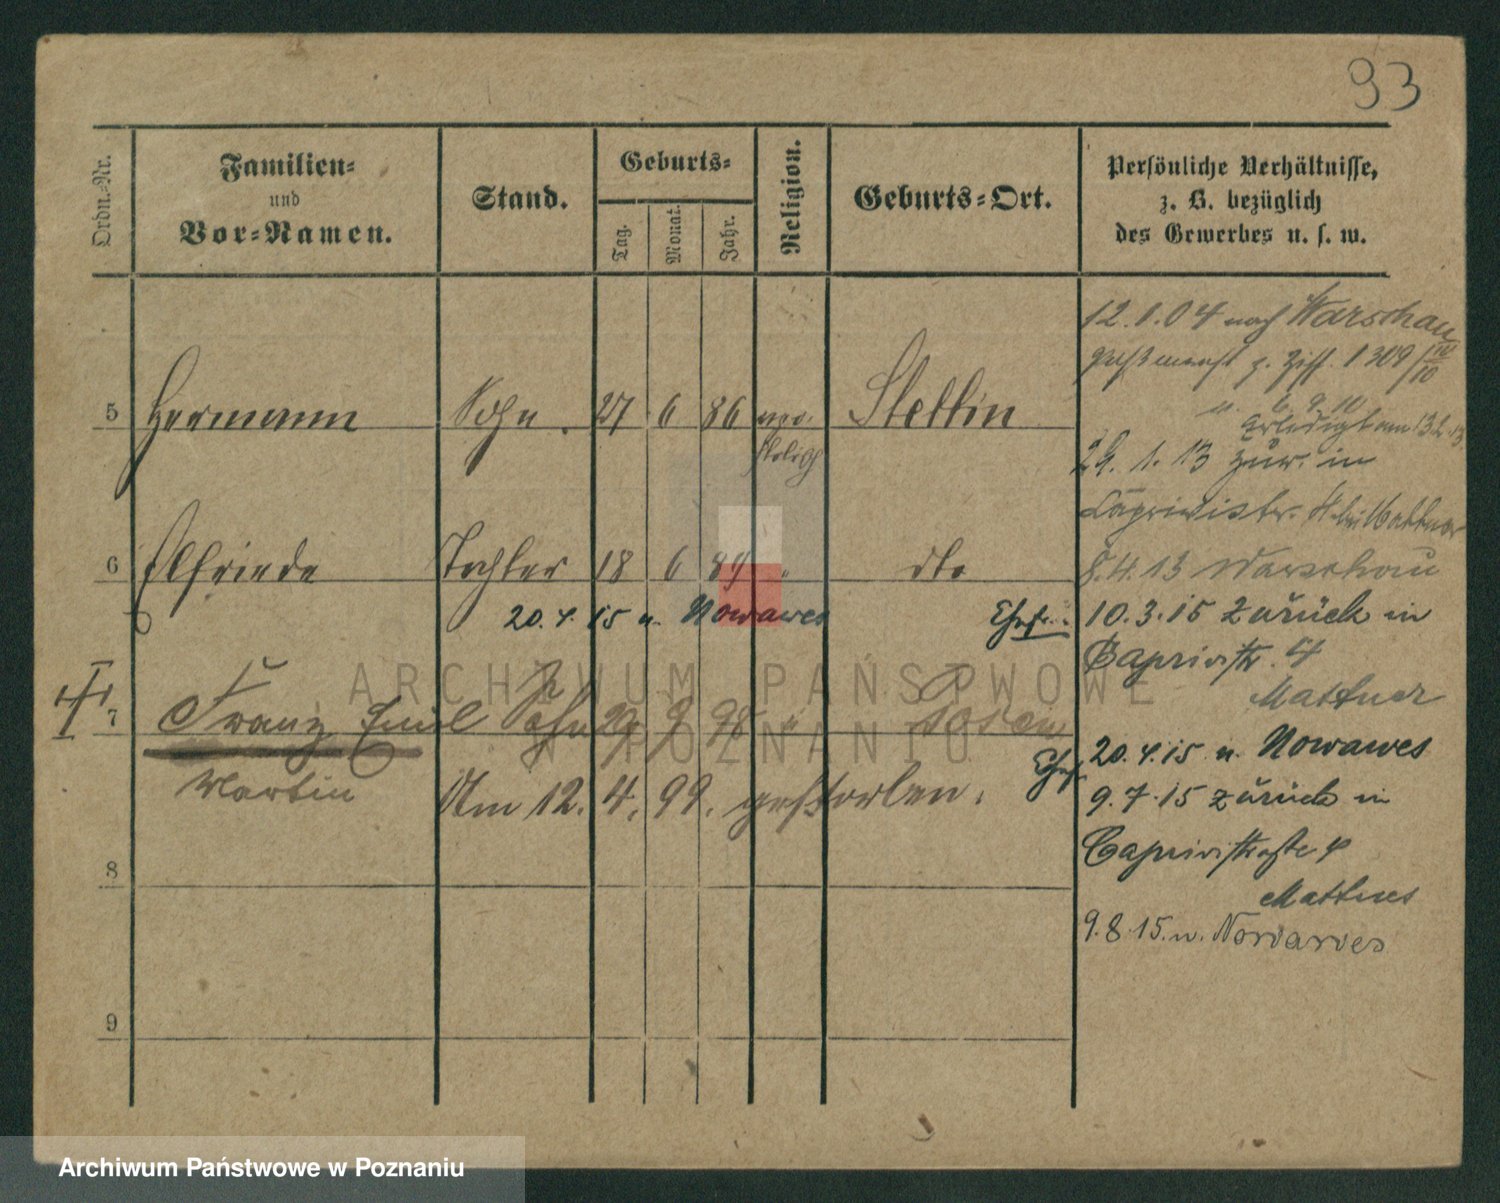 93
Ordn.-Nr.
Familien-
und
Vor-Namen.
Stand.
Geburts-
Tag.
Monat.
Jahr.
Religion.
Geburts-Ort.
Persönliche Verhältnisse,
z. B. bezüglich
des Gewerbes u. s. w.
5 Hermann Sohn. 27 6 86 apo- Stettin
stolisch
6 Elfriede Tochter 18 6 89 " dto
20.4.15 n. Nowawes
7 Franz Emil Sohn 29 9 98 " Posen
Martin
Am 12. 4. 99. gestorben.
8
9
12.1.04 nach Warschau
z. Ziff. 1309/10
u. 6.9.10
Erledigt am
29. 1. 13 zur. in
Caprivistr. 4 bei Mattner
8.4.13 Warschau
10.3.15 zurück in
Caprivistr. 4
Mattner
20.4.15 n. Nowawes
9.7.15 zurück in
Caprivistraße 4
Mattner
9.8.15. n. Nowawes
ARCHIWUM PAŃSTWOWE
W POZNANIU
Archiwum Państwowe w Poznaniu